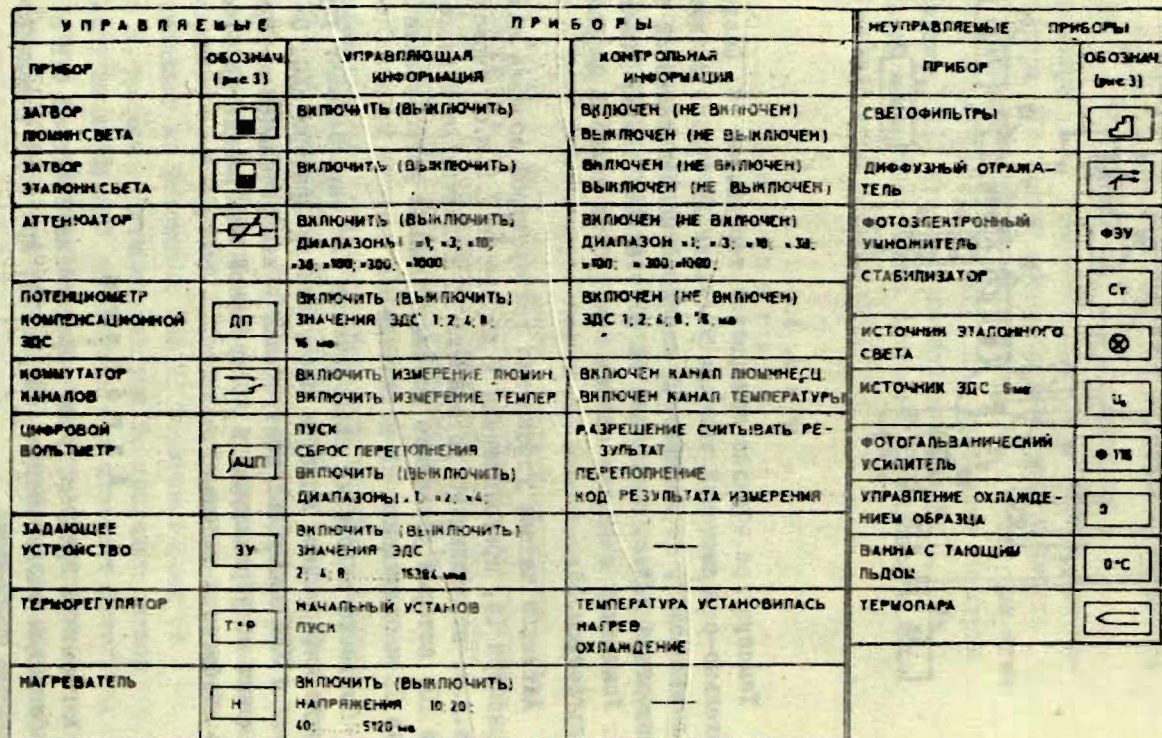 УПРАВЛЯЕМЫЕ ПРИБОРЫ
ПРИБОР
ОБОЗНАЧ.
(рис. 3)
УПРАВЛЯЮЩАЯ
ИНФОРМАЦИЯ
КОНТРОЛЬНАЯ
ИНФОРМАЦИЯ
ЗАТВОР
ЛЮМИН СВЕТА
ВКЛЮЧИТЬ (ВЫКЛЮЧИТЬ)
ВКЛЮЧЕН (НЕ ВКЛЮЧЕН)
ВЫКЛЮЧЕН (НЕ ВЫКЛЮЧЕН)
ЗАТВОР
ЭТАЛОНН СВЕТА
ВКЛЮЧИТЬ (ВЫКЛЮЧИТЬ)
ВКЛЮЧЕН (НЕ ВКЛЮЧЕН)
ВЫКЛЮЧЕН (НЕ ВЫКЛЮЧЕН)
АТТЕНЮАТОР
ВКЛЮЧИТЬ (ВЫКЛЮЧИТЬ)
ДИАПАЗОНЫ ×1, ×3; ×10;
×30; ×100; ×300; ×1000
ВКЛЮЧЕН (НЕ ВКЛЮЧЕН)
ДИАПАЗОН ×1; ×3; ×10; ×30;
×100; ×300; ×1000;
ПОТЕНЦИОМЕТР
КОМПЕНСАЦИОННОЙ
ЭДС
ДП
ВКЛЮЧИТЬ (ВЫКЛЮЧИТЬ)
ЗНАЧЕНИЯ ЭДС 1; 2; 4; 8;
16 мв
ВКЛЮЧЕН (НЕ ВКЛЮЧЕН)
ЭДС 1, 2, 4, 8, 16, мв
КОММУТАТОР
КАНАЛОВ
ВКЛЮЧИТЬ ИЗМЕРЕНИЕ ЛЮМИН.
ВКЛЮЧИТЬ ИЗМЕРЕНИЕ ТЕМПЕР
ВКЛЮЧЕН КАНАЛ ЛЮМИНЕСЦ.
ВКЛЮЧЕН КАНАЛ ТЕМПЕРАТУРЫ
ЦИФРОВОЙ
ВОЛЬТМЕТР
∫АЦП
ПУСК
СБРОС ПЕРЕПОЛНЕНИЯ
ВКЛЮЧИТЬ (ВЫКЛЮЧИТЬ)
ДИАПАЗОНЫ ×1, ×2, ×4;
РАЗРЕШЕНИЕ СЧИТЫВАТЬ РЕ-
ЗУЛЬТАТ
ПЕРЕПОЛНЕНИЕ
КОД РЕЗУЛЬТАТА ИЗМЕРЕНИЯ
ЗАДАЮЩЕЕ
УСТРОЙСТВО
ЗУ
ВКЛЮЧИТЬ (ВЫКЛЮЧИТЬ)
ЗНАЧЕНИЯ ЭДС
2, 4, 8, ...... 16384
—
ТЕРМОРЕГУЛЯТОР
Т°Р
НАЧАЛЬНЫЙ УСТАНОВ
ПУСК
ТЕМПЕРАТУРА УСТАНОВИЛАСЬ
НАГРЕВ
ОХЛАЖДЕНИЕ
НАГРЕВАТЕЛЬ
Н
ВКЛЮЧИТЬ (ВЫКЛЮЧИТЬ)
НАПРЯЖЕНИЯ 10; 20;
40; ...... 5120 мв
—
НЕУПРАВЛЯЕМЫЕ ПРИБОРЫ
ПРИБОР
ОБОЗНАЧ.
(рис. 3)
СВЕТОФИЛЬТРЫ
ДИФФУЗНЫЙ ОТРАЖА-
ТЕЛЬ
ФОТОЭЛЕКТРОННЫЙ
УМНОЖИТЕЛЬ
ФЭУ
СТАБИЛИЗАТОР
Ст
ИСТОЧНИК ЭТАЛОННОГО
СВЕТА
ИСТОЧНИК ЭДС
ФОТОГАЛЬВАНИЧЕСКИЙ
УСИЛИТЕЛЬ
Ф 116
УПРАВЛЕНИЕ ОХЛАЖДЕ-
НИЕМ ОБРАЗЦА
ВАННА С ТАЮЩИМ
ЛЬДОМ
0°С
ТЕРМОПАРА